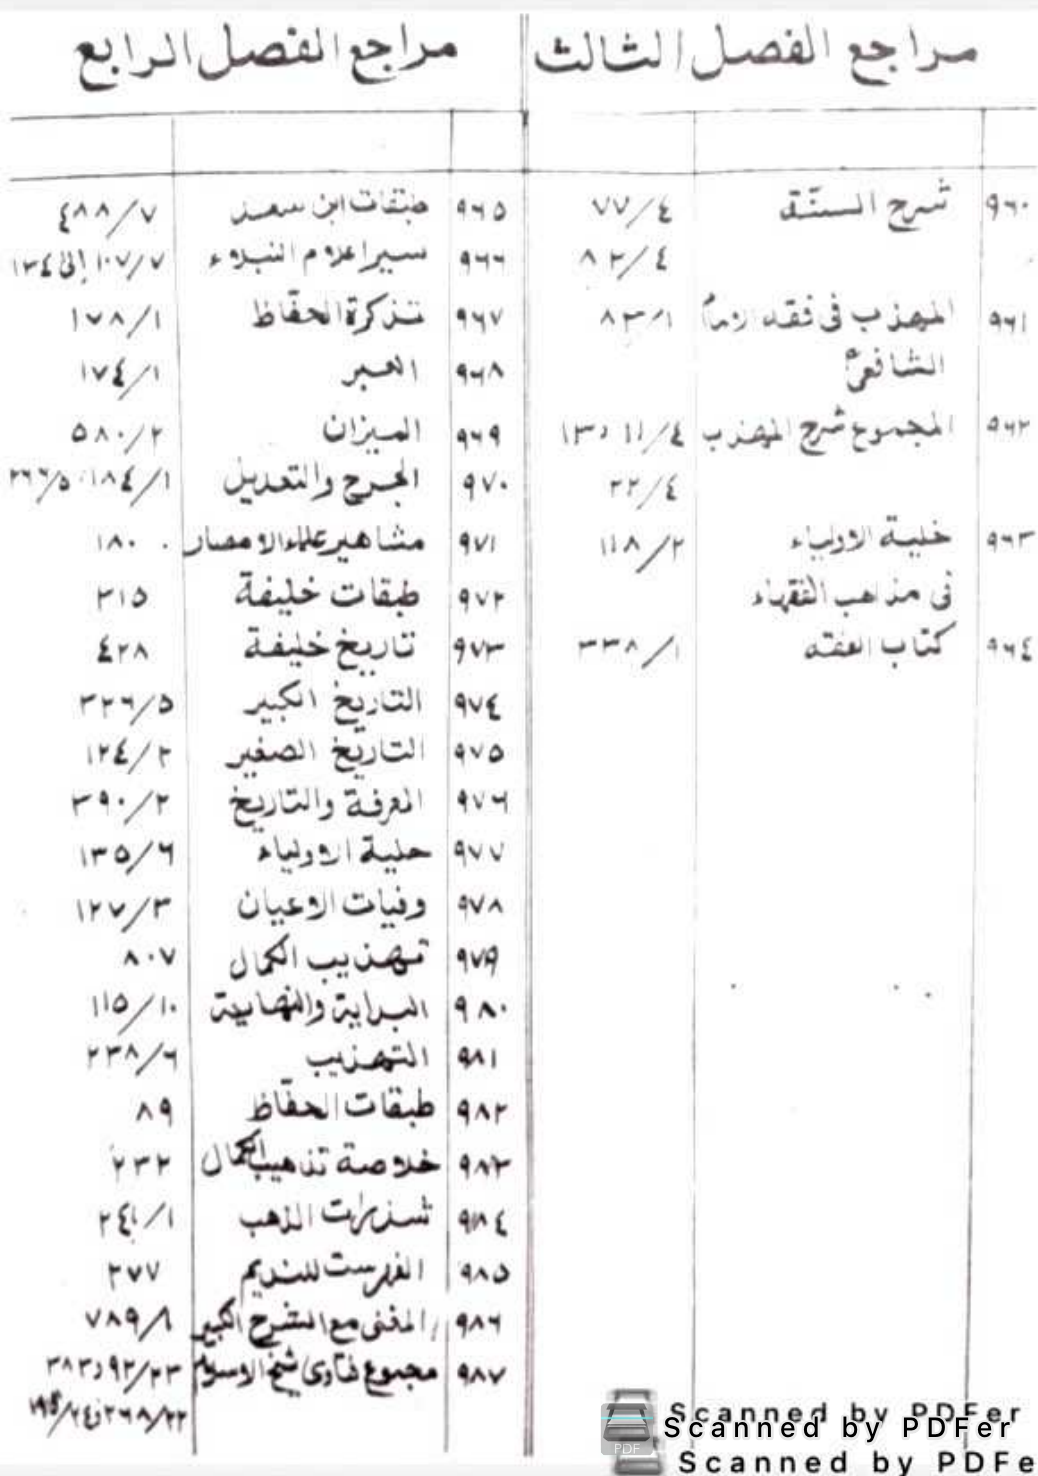 مراجع الفصل الثالث
٩٦٠ شرح السنّة ٤/٧٧
٤/٨٢
٩٦١ المهذب فى فقه الامام ١/٨٣
الشافعىؒ
٩٦٢ المجموع شرح المهذب ٤/١١، ١٣
٤/٢٢
٩٦٣ حلية الاولياء ٢/١١٨
فى مذاهب الفقهاء
٩٦٤ كتاب الفقه ١/٣٣٨
مراجع الفصل الرابع
٩٦٥ طبقات ابن سعد ٧/٤٨٨
٩٦٦ سير اعلام النبلاء ٧/١٠٧ إلى ١٣٤
٩٦٧ تذكرة الحفّاظ ١/١٧٨
٩٦٨ العبر ١/١٧٤
٩٦٩ الميزان ٢/٥٨٠
٩٧٠ الجرح والتعديل ١/١٨٤، ٥/٢٦٦
٩٧١ مشاهير علماء الامصار ١٨٠
٩٧٢ طبقات خليفة ٣١٥
٩٧٣ تاريخ خليفة ٤٢٨
٩٧٤ التاريخ الكبير ٥/٣٢٦
٩٧٥ التاريخ الصغير ٢/١٢٤
٩٧٦ المعرفة والتاريخ ٢/٣٩٠
٩٧٧ حلية الاولياء ٦/١٣٥
٩٧٨ وفيات الاعيان ٣/١٢٧
٩٧٩ تهذيب الكمال ٨٠٧
٩٨٠ البداية والنهاية ١٠/١١٥
٩٨١ التهذيب ٦/٢٣٨
٩٨٢ طبقات الحفّاظ ٨٩
٩٨٣ خلاصة تذهيب الكمال ٢٣٢
٩٨٤ شذرات الذهب ١/٢٤١
٩٨٥ الفهرست للنديم ٢٧٧
٩٨٦ المغنى مع الشرح الكبير ٨/٧٨٩
٩٨٧ مجموع فتاوى شيخ الاسلام ٢٣/٩٢، ٣٨٣
٢٢/٢٦٨
Scanned by PDFer
Scanned by PDFer
Scanned by PDFe
PDF